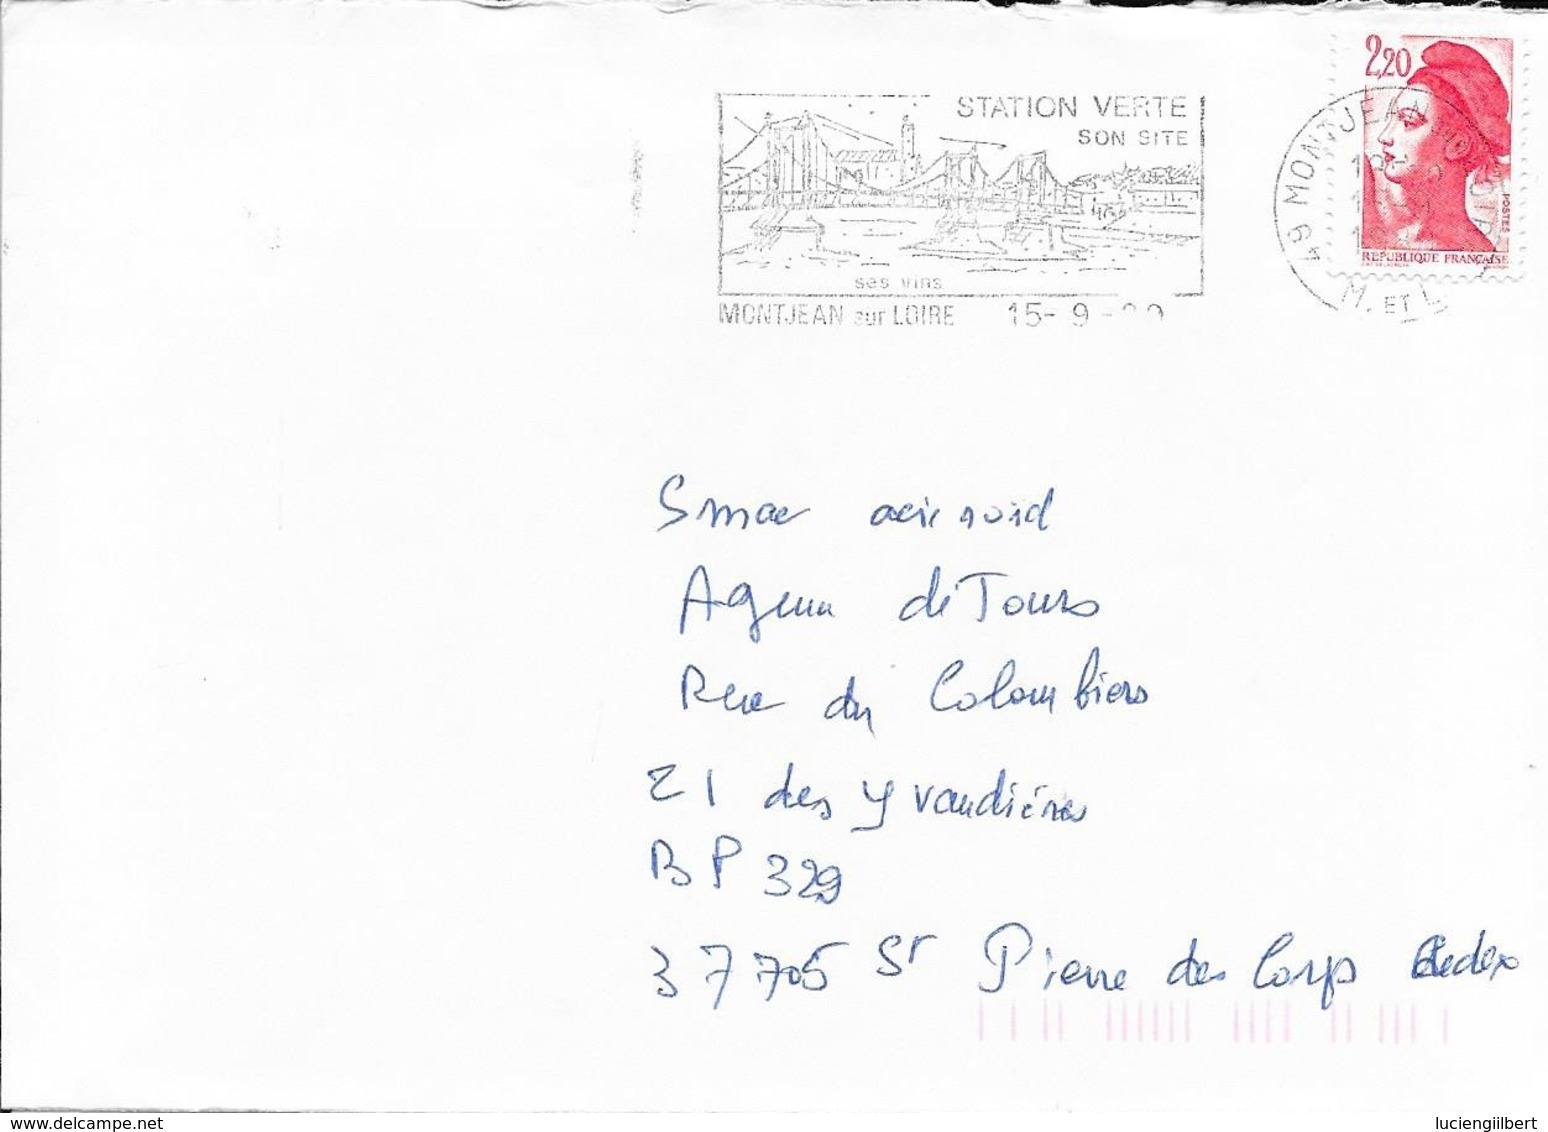 2,20
STATION VERTE
SON SITE
POSTES
REPUBLIQUE FRANÇAISE
49 MONTJEAN
M. ET L.
ses vins
MONTJEAN sur LOIRE 15-9-
Smac acieroid
Agence de Tours
Rue du Colombiers
ZI des Yvaudières
BP 329
37705 St Pierre des Corps Cedex
www.delcampe.net
luciengilbert